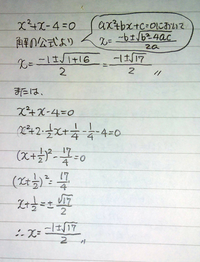 x²+x-4=0
ax²+bx+c=0において
x=(-b±√(b²-4ac))/2a
解の公式より
x=(-1±√(1+16))/2=(-1±√17)/2 〃
または、
x²+x-4=0
x²+2·(1/2)x+1/4-1/4-4=0
(x+1/2)²-17/4=0
(x+1/2)²=17/4
x+1/2=±√17/2
∴x=(-1±√17)/2 〃